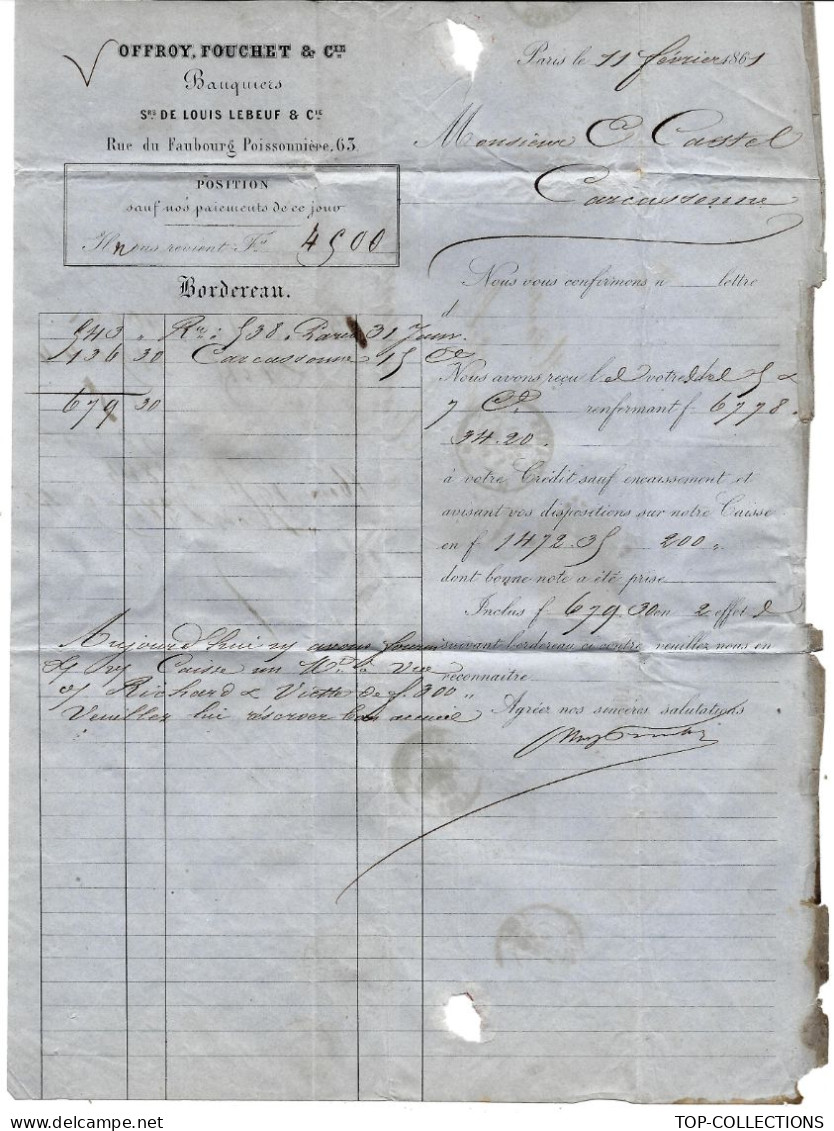 OFFROY, FOUCHET & CIE
Banquiers
SRS DE LOUIS LEBEUF & CIE
Rue du Faubourg Poissonnière, 63
POSITION
sauf nos paiements de ce jour
Il nous revient F. 4500
Bordereau.
543 " 538. Paris 31
136 30 Carcassonne 15
679 30
Paris le 11 février 1861
Monsieur C Castel
Carcassonne
Nous vous confirmons n lettre
d
Nous avons reçu l votre 5 &
7 Ct renfermant f 6778.
34.20
à votre Crédit sauf encaissement et
avisant vos dispositions sur notre Caisse
en f 1472.35 200 "
dont bonne note a été prise
Inclus f 679.30 en 2 effets
suivant bordereau ci contre, veuillez nous en
reconnaître
Agréez nos sincères salutations
Aujourd'hui avons fourni
Caisse un Vue
o/ Richard & de f 300 "
Veuillez lui réserver bon accueil
TOP-COLLECTIONS